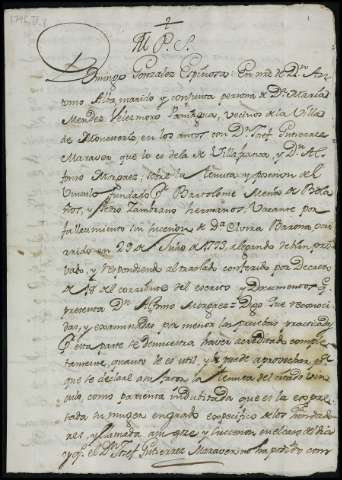 M. P. S.
Domingo Gonzalez Espinosa: En nre de Dn An-
tonio Alba marido y conjunta persona de Da Maria
Mendez Vecinos de la Villa
de en los autos con Dn Josef Gutierrez
Maraver, que lo es de la de Villafranca, y Dn Al-
fonso Marquez: sobre la tenuta y posesion del
Vinculo fundado pr Bartolome
y Pedro Zambrano hermanos, Vacante por
fallecimiento sin sucesion de Da Elvira Barona ocu-
rrido en 29 de Julio de alegando de bien pro-
vado, y respondiendo al traslado conferido por Decreto
de 18 del corriente del escrito y Documentos q
presenta Dn Alfonso Marquez = Digo que reconoci-
das, y examinadas por menor las practicadas
pr esta parte se demuestra haver acreditado comple-
tamente, quanto le es util, y le puede aprovechar, pa
que se declare en su favor la tenuta del citado Vin-
culo, como parienta indubitada que es la expre-
sada su muger en grado especifico de los fundado-
res, y llamada a su goze y sucesion en el caso del dia
y q el Dn Josef Gutierrez Maraver no ha podido con